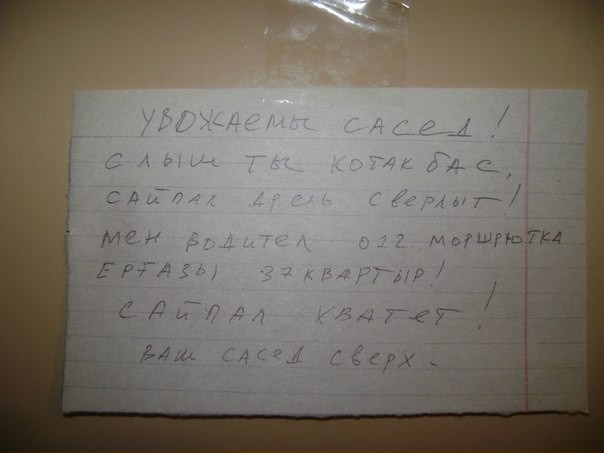 УВОЖАЕМЫ САСЕД!
СЛЫШ ТЫ КОТАКБАС,
САЙПАЛ ДРЕЛЬ СВЕРЛЫТ!
МЕН ВОДИТЕЛ 012 МОРШРЮТКА
ЕРГАЗЫ 37 КВАРТЫР!
САЙПАЛ ХВАТЕТ!
ВАШ САСЕД СВЕРХ.